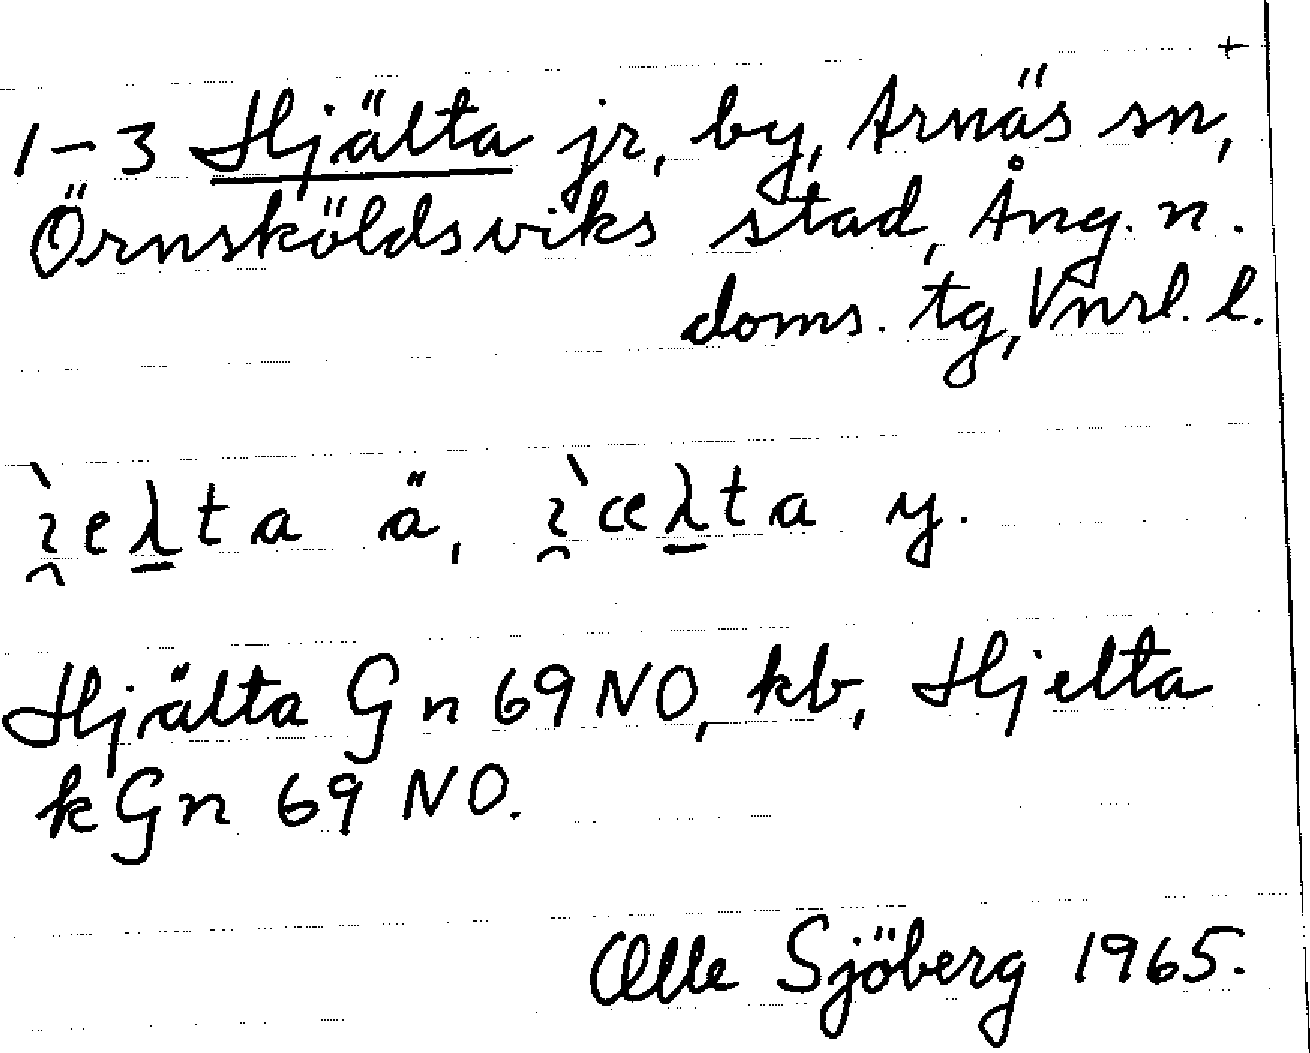 +
1–3 Hjälta jr, by, Arnäs sn,
Örnsköldsviks stad, Ång. n.
doms. tg, Vnrl. l.
ı̯̀eλ̲ta ä, ı̯̀æλ̲ta y.
Hjälta Gn 69 NO, kb, Hjelta
kGn 69 NO.
Olle Sjöberg 1965.